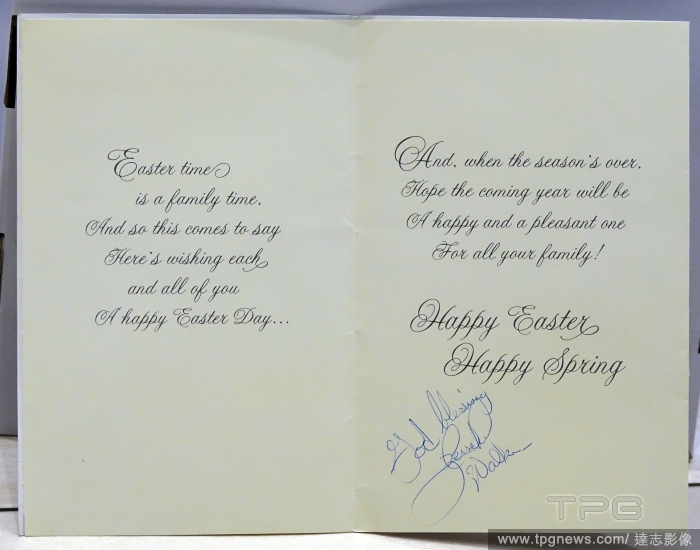 Easter time
is a family time,
And so this comes to say
Here's wishing each
and all of you
A happy Easter Day...
And, when the season's over,
Hope the coming year will be
A happy and a pleasant one
For all your family!
Happy Easter
Happy Spring
God blessings
Walker
TPG
www.tpgnews.com/ 達志影像